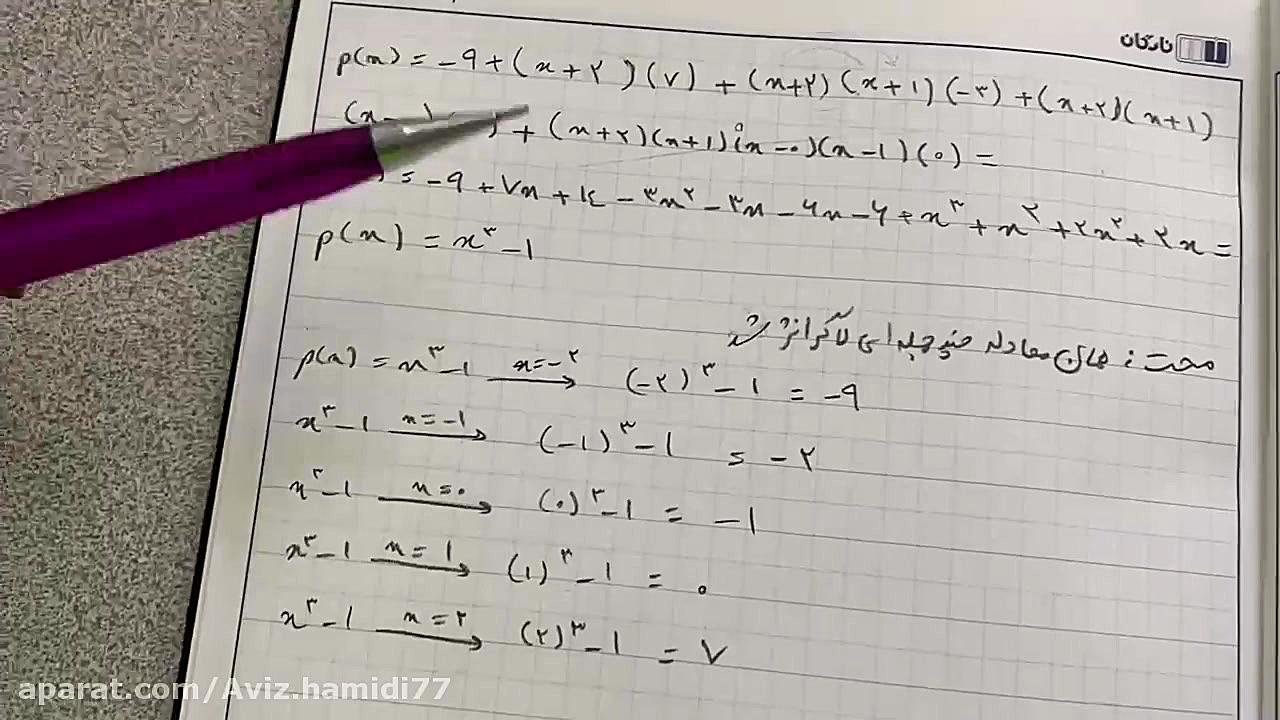 نارکان
p(x) = -۹ + (x+۲)(۷) + (x+۲)(x+۱)(-۳) + (x+۲)(x+۱)
+ (x+۲)(x+۱)(x-۰)(x-۱)(۰) =
= -۹ + ۷x + ۱۴ - ۳x^۲ - ۳x - ۶x - ۶ + x^۳ + x^۲ + ۲x^۲ + ۲x =
p(x) = x^۳ - ۱
صحت : همان معادله چند جمله ای لاگرانژ شد
p(x) = x^۳ - ۱ → x=-۲ (-۲)^۳ - ۱ = -۹
x^۳ - ۱ → x=-۱ (-۱)^۳ - ۱ = -۲
x^۳ - ۱ → x=۰ (۰)^۳ - ۱ = -۱
x^۳ - ۱ → x=۱ (۱)^۳ - ۱ = ۰
x^۳ - ۱ → x=۲ (۲)^۳ - ۱ = ۷
aparat.com/Aviz.hamidi77